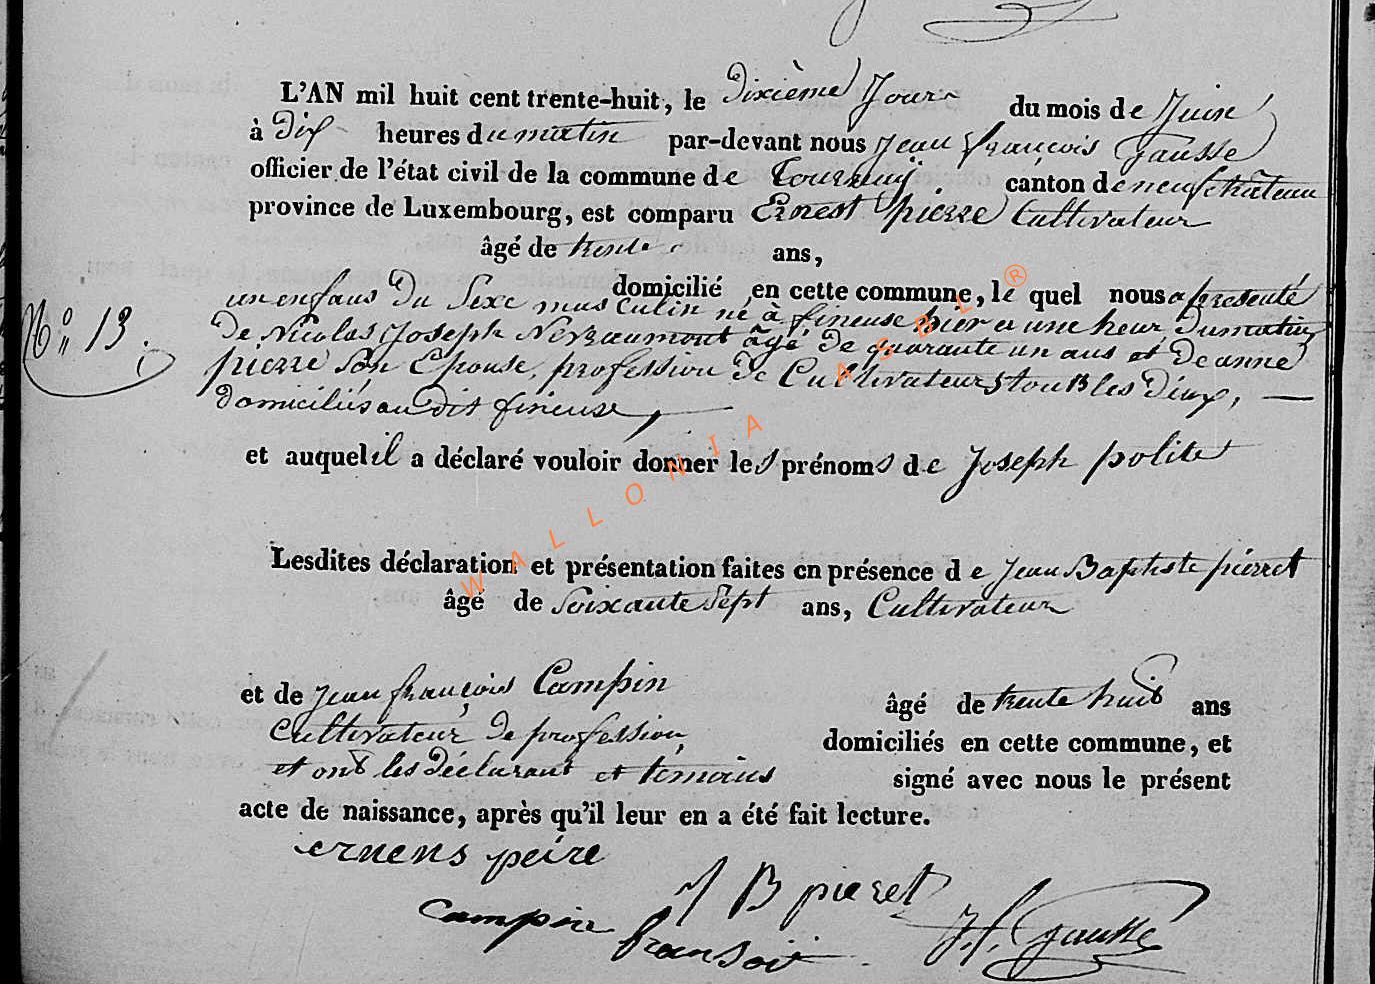 L'AN mil huit cent trente-huit, le dixième Jour du mois de Juin
à Dix heures du matin par-devant nous jean françois Gausse
officier de l'état civil de la commune de Tournay canton de neufchâteau
province de Luxembourg, est comparu Ernest pierre Cultivateur
âgé de trente ans,
domicilié en cette commune, le quel nous a presenté
un enfans du Sexe masculin né à fineuse hier a une heur Dumatin
N° 13.
De Nicolas Joseph âgé de quarante un ans et De anne
pierre Son Epouse, profession de Cultivateurs tous les Deux,
domiciliés au dit fineuse,
et auquel il a déclaré vouloir donner les prénoms de Joseph polite
Lesdites déclaration et présentation faites en présence de Jean Baptiste pierret
âgé de Soixante Sept ans, Cultivateur
et de jean françois Campin âgé de trente huit ans
Cultivateur de profession, domiciliés en cette commune, et
et ont les Déclarant et temoins signé avec nous le présent
acte de naissance, après qu'il leur en a été fait lecture.
ernens peire
J B pieret
campin fransoi
J. f. Gausse
WALLONIA ASBL ®